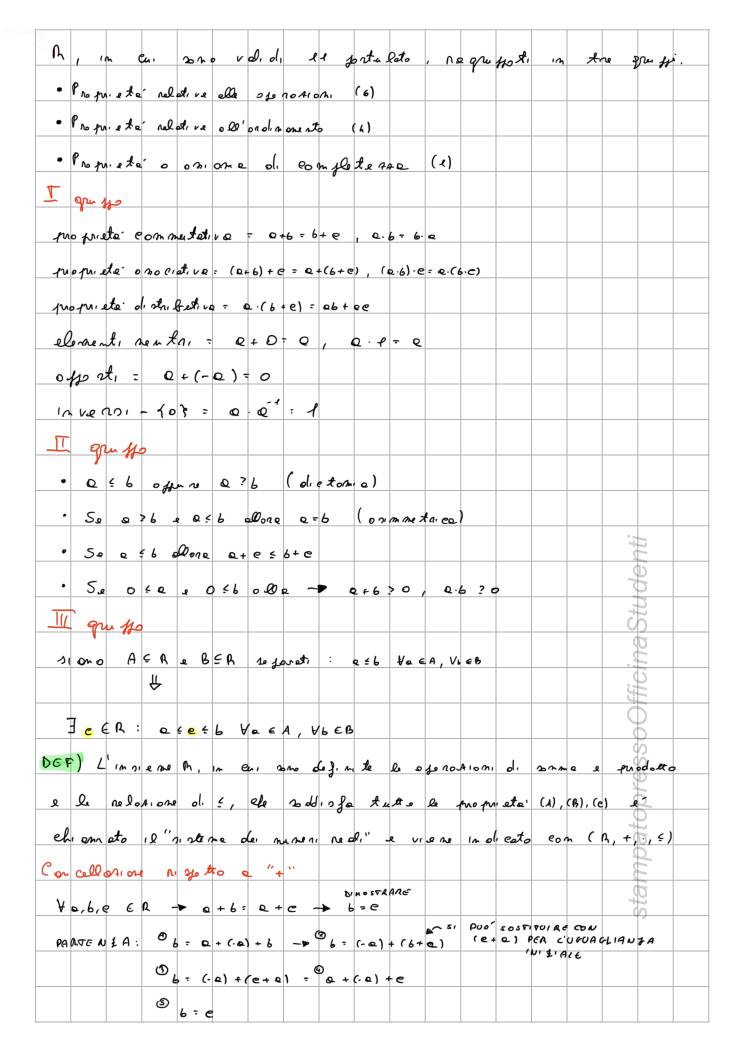 R, in cui sono validi 11 postulati, raggruppati in tre gruppi.
• Proprietà relative alle operazioni (6)
• Proprietà relative all'ordinamento (4)
• Proprietà o assioma di completezza (1)
I gruppo
proprietà commutativa = a+b = b+a, a·b = b·a
proprietà associativa = (a+b)+c = a+(b+c), (a·b)·c = a·(b·c)
proprietà distributiva = a·(b+c) = ab+ac
elementi neutri = a+0=a, a·1=a
opposti = a+(-a)=0
inversi - {0} = a·a⁻¹ = 1
II gruppo
• a ≤ b oppure a ≥ b (dicotomia)
• Se a ≥ b e a ≤ b allora a=b (asimmetrica)
• Se a ≤ b allora a+c ≤ b+c
• Se 0 ≤ a e 0 ≤ b allora → a+b ≥ 0, a·b ≥ 0
III gruppo
siano A ⊆ R e B ⊆ R separati : a ≤ b ∀a ∈ A, ∀b ∈ B
⇓
∃ c ∈ R : a ≤ c ≤ b ∀a ∈ A, ∀b ∈ B
DEF) L'insieme R, in cui sono definite le operazioni di somma e prodotto
e la relazione di ≤, che soddisfa tutte le proprietà (A), (B), (C) è
chiamato il "sistema dei numeri reali" e viene indicato con (R, +, ·, ≤)
Cancellazione rispetto a "+"
∀a,b,c ∈ R → a+b = a+c → DIMOSTRARE b=c
PARTENZA: ① b = a+(-a)+b → ② b = (-a)+(b+a) SI PUÒ SOSTITUIRE CON
(c+a) PER L'UGUAGLIANZA
INIZIALE
③ b = (-a)+(c+a) = ④ a+(-a)+c
⑤ b = c
stampatopressoOfficinaStudenti